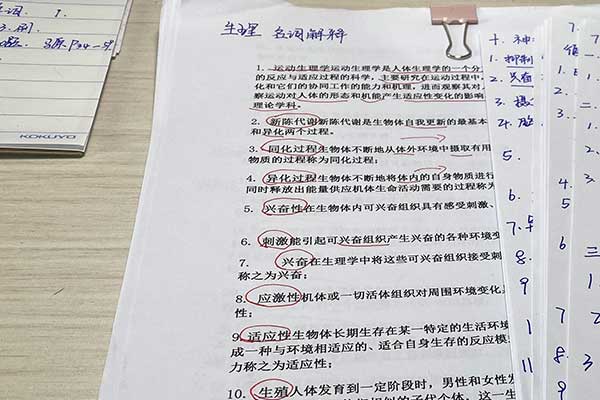 生理 名词解释
1. 运动生理学运动生理学是人体生理学的一个分
的反应与适应过程的科学，主要研究在运动过程中，
化和它们的协同工作的能力和机理，进而观察其对
察运动对人体的形态和机能产生适应性变化的影响
理论学科。
2. 新陈代谢新陈代谢是生物体自我更新的最基本
和异化两个过程。
3. 同化过程生物体不断地从体外环境中摄取有用
物质的过程称为同化过程；
4. 异化过程生物体不断地将体内的自身物质进行
同时释放出能量供应机体生命活动需要的过程称为
5. 兴奋性在生物体内可兴奋组织具有感受刺激、
6. 刺激能引起可兴奋组织产生兴奋的各种环境变
7. 兴奋在生理学中将这些可兴奋组织接受刺
称之为兴奋；
8. 应激性机体或一切活体组织对周围环境变化
性；
9. 适应性生物体长期生存在某一特定的生活环境
成一种与环境相适应的、适合自身生存的反应模
力称之为适应性；
10. 生殖人体发育到一定阶段时，男性和女性发
相似的子代个体，这一生
KOKUYO
十. 神
1. 抑制
2. 兴奋
3. 摄
4. 脑
5.
6.
7.
8.
9